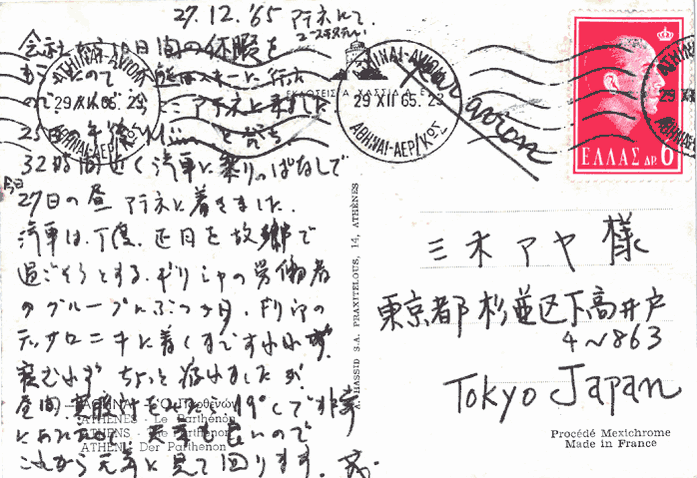 27.12.'65 アテネにて.
ユースホステル
会社から10日間の休暇を
もらったので スキーに行
ので アテネに来ました
25日の午後 Münを発ち
32時間近く汽車に乗りっぱなしで
今日
27日の昼 アテネに着きました.
汽車は、丁度、正月を故郷で
過ごそうとする、ギリシャの労働者
のグループにぶつかり、ギリシャの
テッサロニキに着くまで
寝むれず ちょっと疲れましたが
昼間 19°Cで非常
に 天気も良いので
これから元気に見て回ります.
ΑΘΗΝΑΙ - Ὁ Παρθενών
ATHENES - Le Parthénon
ATHENS - The Parthenon
ATHEN - Der Parthenon
A. HASSID S.A. PRAXITELOUS, 14, ATHÈNES
ATHINAI-AVION
29 XII 65. 23
ΑΘΗΝΑΙ-ΑΕΡ/ΚΩΣ
ATHINAI-AVION
29 XII 65. 23
ΑΘΗΝΑΙ-ΑΕΡ/ΚΩΣ
Par avion
ΕΛΛΑΣ ΔΡ. 6
三木アヤ 様
東京都杉並区下高井戸
4~863
Tokyo Japan
Procédé Mexichrome
Made in France